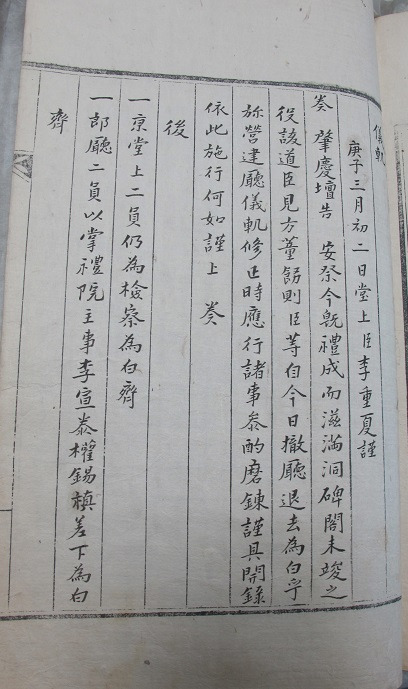 儀軌
庚子三月初二日堂上臣李重夏謹
奏 肇慶壇告 安祭今旣禮成而滋滿洞碑閣未竣之
役該道臣見方董飭則臣等自今日撤廳退去爲白乎
旀營建廳儀軌修正時應行諸事叅酌磨鍊謹具開錄
依此施行何如謹上 奏
後
一原堂上二員仍爲檢察爲白齊
一郎廳二員以掌禮院主事李宣泰權錫禛差下爲白
齊